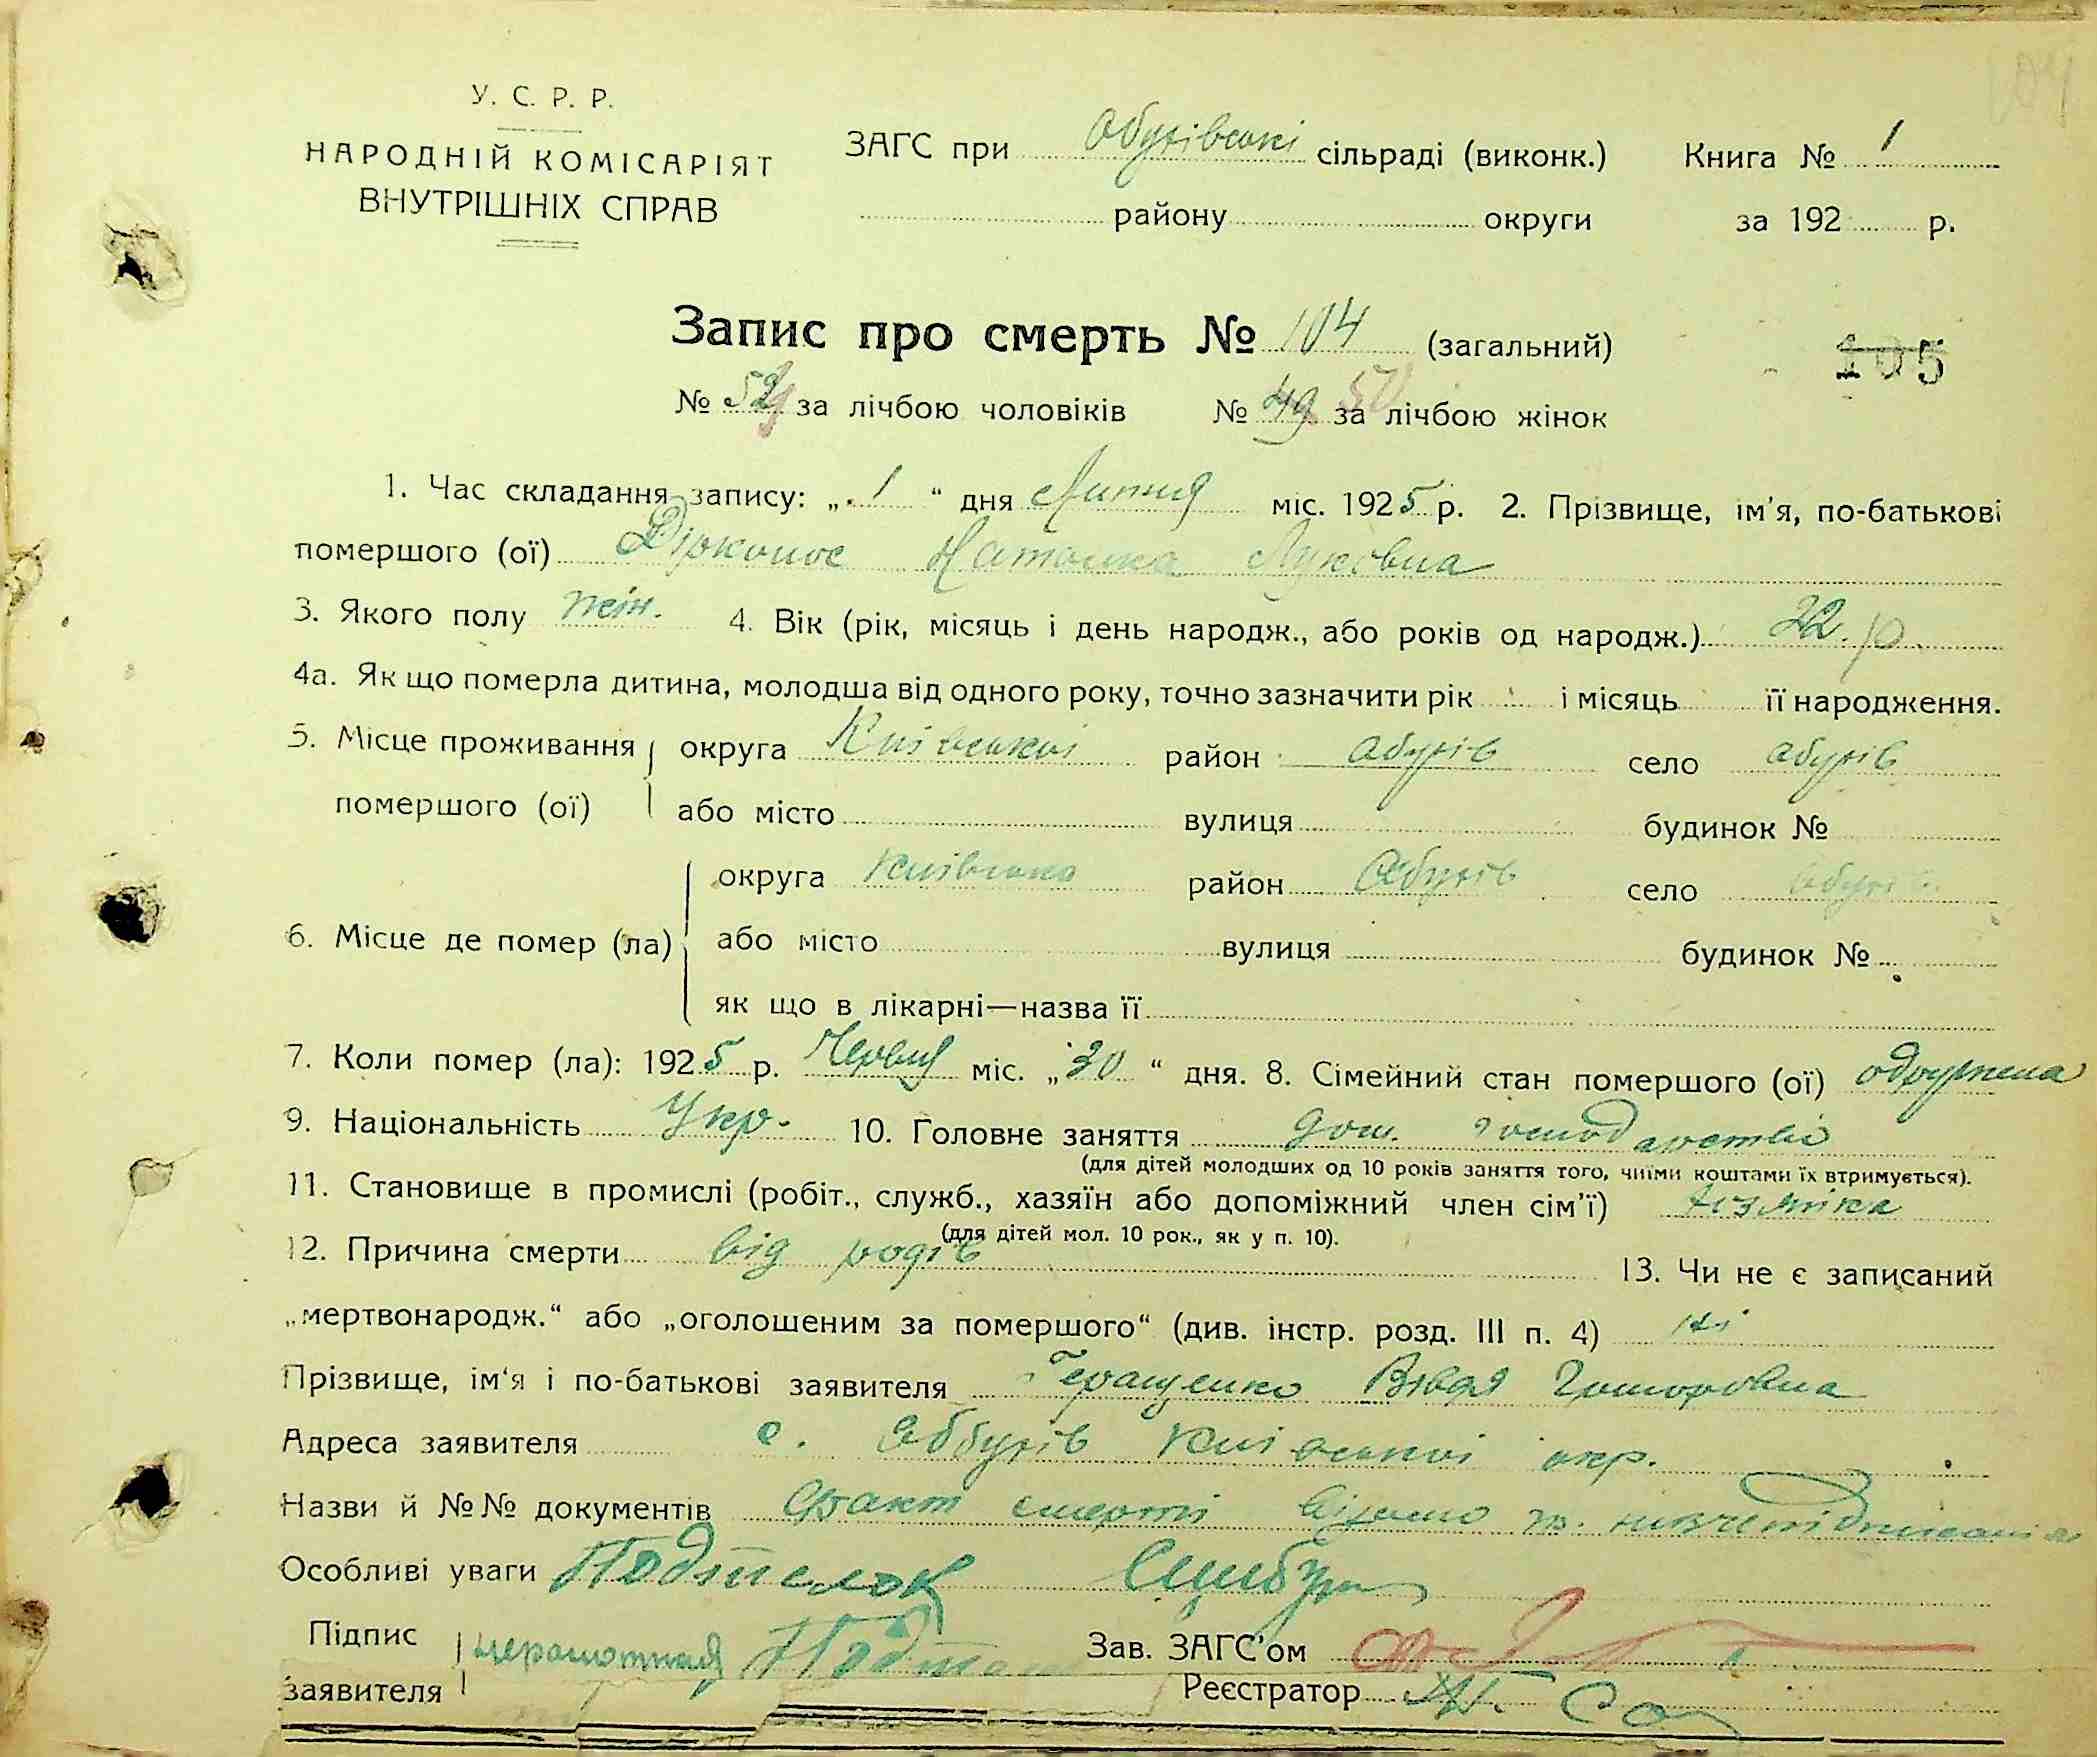 У. С. Р. Р.
НАРОДНІЙ КОМІСАРІЯТ
ВНУТРІШНІХ СПРАВ
ЗАГС при Обухівські сільраді (виконк.) Книга № 1
району округи за 192 р.
Запис про смерть № 104 (загальний)
105
№ 52 за лічбою чоловіків № 49 50 за лічбою жінок
1. Час складання запису: „1“ дня Липня міс. 1925 р. 2. Прізвище, ім'я, по-батькові
помершого (ої) Наталка Луковна
3. Якого полу жін. 4. Вік (рік, місяць і день народж., або років од народж.) 22 р.
4а. Як що померла дитина, молодша від одного року, точно зазначити рік і місяць її народження.
5. Місце проживання округа Київської район Абухів село Абухів
помершого (ої) або місто вулиця будинок №
округа Київська район Обухів село Обухів
6. Місце де помер (ла) або місто вулиця будинок №
як що в лікарні—назва її
7. Коли помер (ла): 1925 р. Червня міс. „30“ дня. 8. Сімейний стан помершого (ої) одружена
9. Національність Укр. 10. Головне заняття дом. господарство
(для дітей молодших од 10 років заняття того, чиїми коштами їх втримується).
11. Становище в промислі (робіт., служб., хазяїн або допоміжний член сім'ї) хазяйка
(для дітей мол. 10 рок., як у п. 10).
12. Причина смерти від родів 13. Чи не є записаний
„мертвонародж.“ або „оголошеним за помершого“ (див. інстр. розд. III п. 4) ні
Прізвище, ім'я і по-батькові заявителя Геращенко Явдя
Адреса заявителя с. Аббухів Київської окр.
Назви й №№ документів Факт смерті
Особливі уваги
Підпис неграмотная Зав. ЗАГС'ом
заявителя Реєстратор